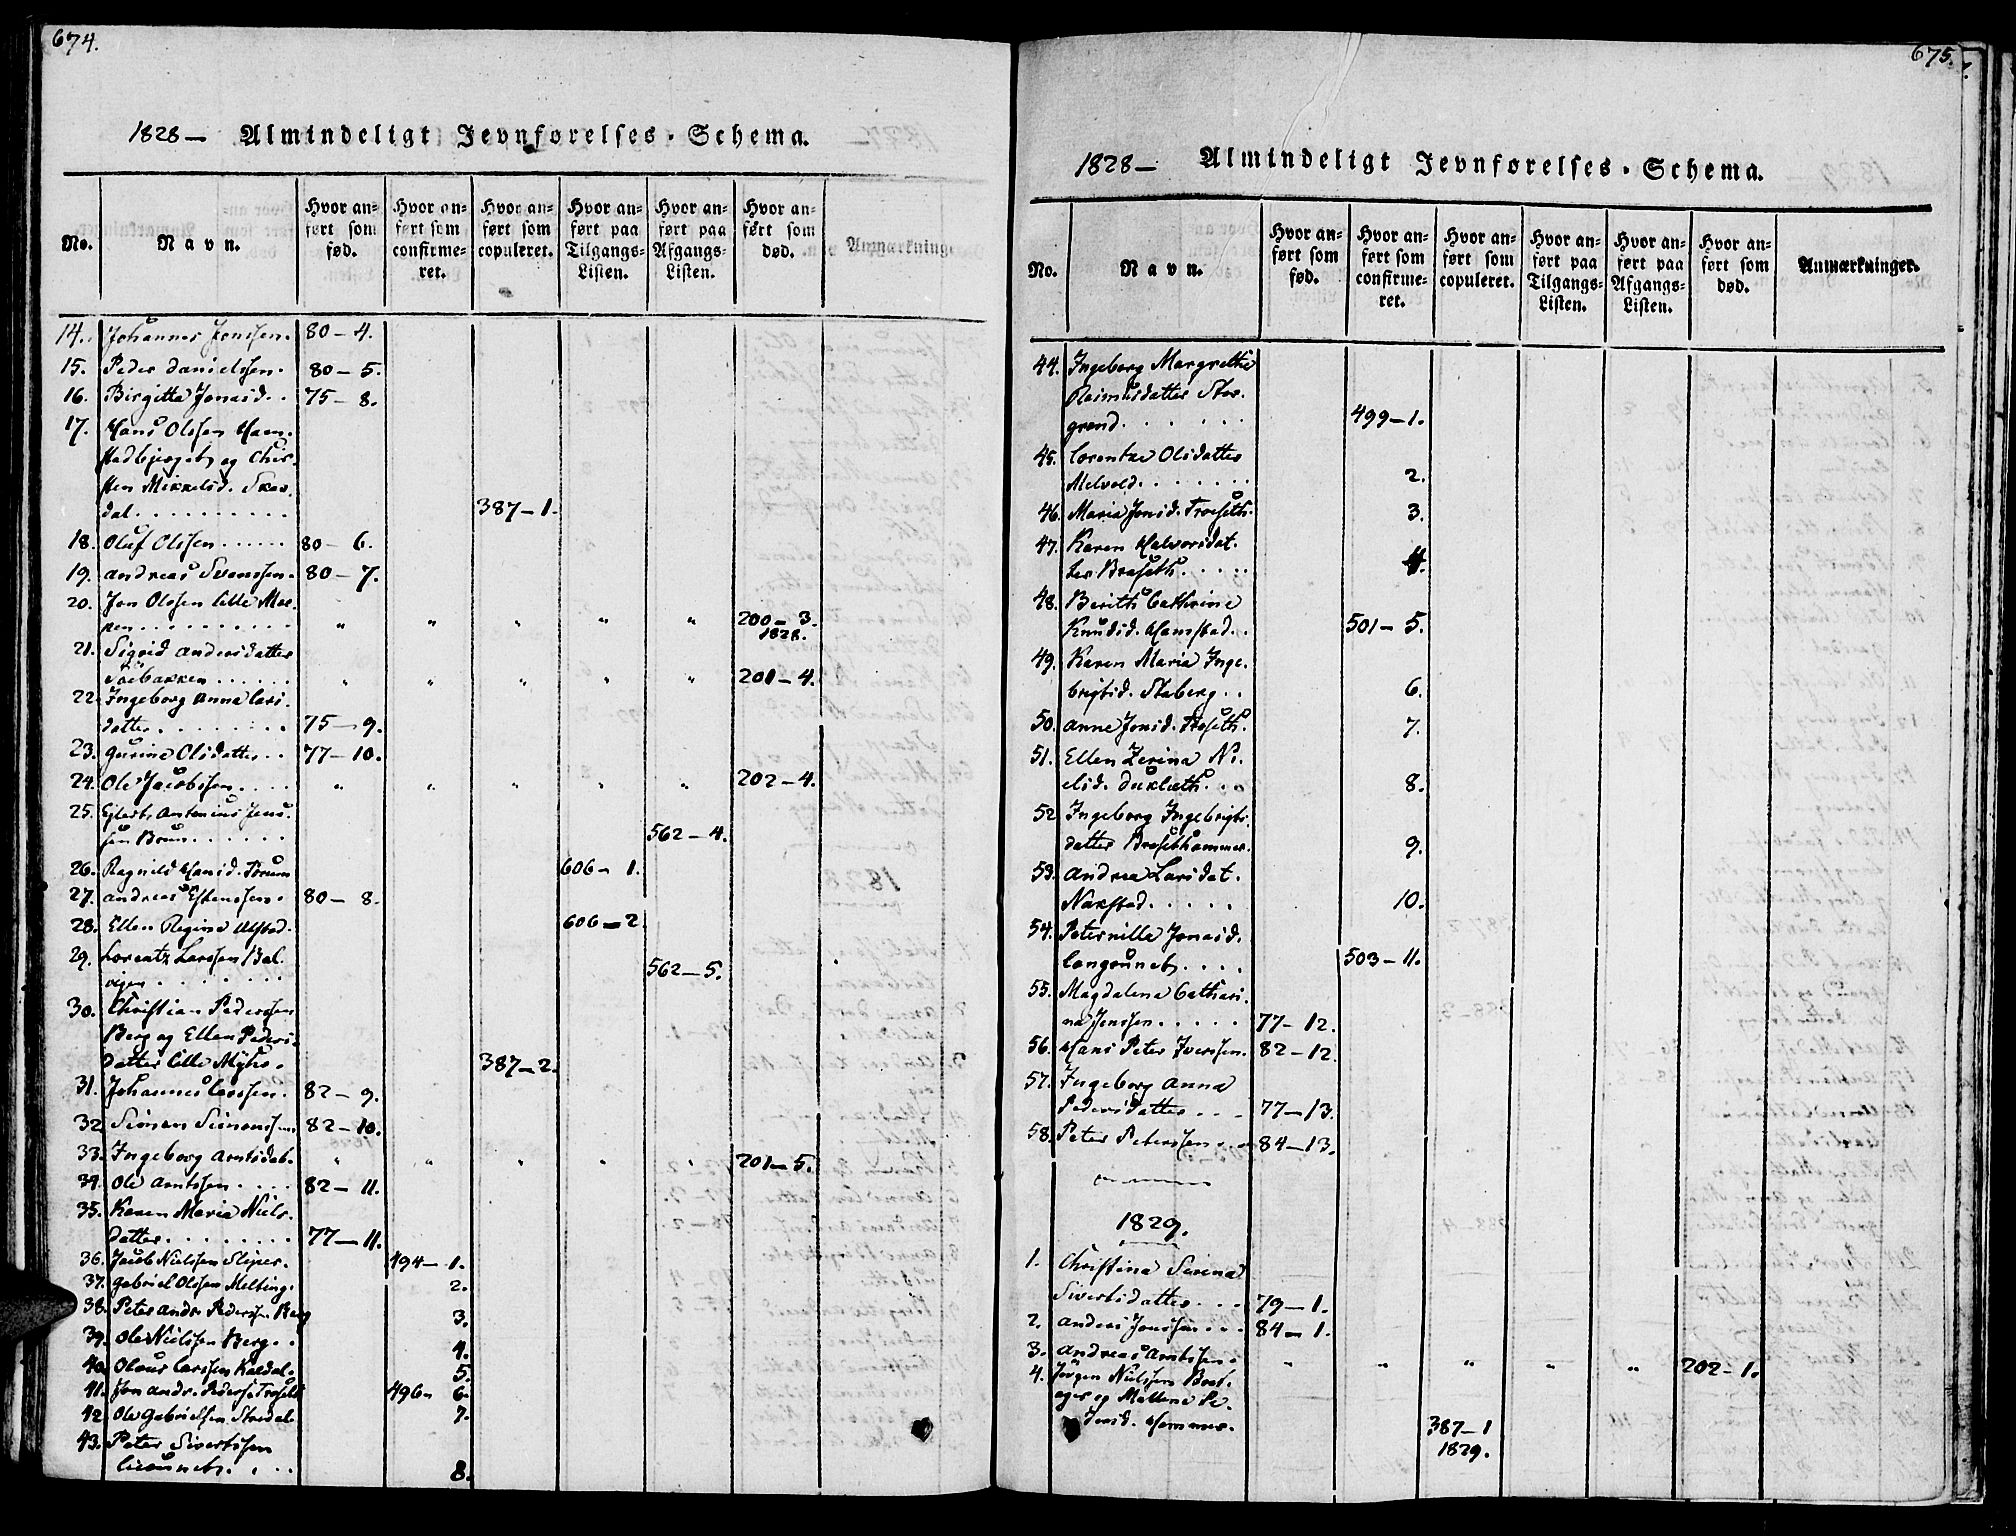 674.
1828 — Almindeligt Jevnførelses-Schema.
No. Navn. Hvor anført som fød. Hvor anført som confirmeret. Hvor anført som copuleret. Hvor anført paa Tilgangs-Listen. Hvor anført paa Afgangs-Listen. Hvor anført som død. Anmærkninger
14. Johannes Jonssen. 80-4.
15. Peder Danielssen. 80-5.
16. Birgitta Jonasd. . 75-8.
17. Hans Olssen Ham-
stadbjerget og Chir-
sten Mikkelsd. Skar-
dal . . . . . . . . . . 387-1.
18. Oluf Olssen . . . . . . 80-6.
19. Andreas Svenssen. 80-7.
20. Jon Olssen lille Mar-
ken . . . . . . . . . . . " " " " " 200-3.
1828.
21. Sigrid Andersdatter
Söebakken . . . . . . " " " " " 201-4.
22. Ingeborg Anna Lars-
datter . . . . . . . . . 75-9.
23. Gurine Olsdatter . . 77-10.
24. Ole Jacobssen . . . . " " " " " 202-4.
25. Antonius Jens-
sen Bruun . . . . . . 562-4.
26. Ragnild Hansd. 606-1.
27. Andreas Estenssen. 80-8.
28. Ellen Regine Alstad. 606-2.
29. Lorentz Larssen Bal-
. . . . . . . 562-5.
30. Christian Pederssen
Berg og Ellen Peders-
datter lille Myhr. 387-2.
31. Johannes Larssen. 82-9.
32. Simon Simonssen 82-10.
33. Ingeborg Arntsdat. " " " " " 201-5.
34. Ole Arntssen . . . . 82-11.
35. Karen Maria Niels-
datter . . . . . . . . 77-11.
36. Jacob Nielssen Sliper. 494-1.
37. Gabriel Olssen Melting. 2.
38. Peter Andr. Pederssen Berg 3.
39. Ole Nielssen Berg . . 4.
40. Olaus Larssen Kaldal. 5.
41. Jon Andr. Peders. Troseth 496-6.
42. Ole Gabrielsen Stredal. 7.
43. Peter Sivertssen
. . . 8.
675.
1828 — Almindeligt Jevnførelses-Schema.
No. Navn. Hvor anført som fød. Hvor anført som confirmeret. Hvor anført som copuleret. Hvor anført paa Tilgangs-Listen. Hvor anført paa Afgangs-Listen. Hvor anført som død. Anmærkninger.
44. Ingeborg Margrethe
Rasmusdatter Stor-
grand . . . . . . 499-1.
45. Lorentze Olsdatter
Melvold . . . . . . . 2.
46. Maria Jonsd. Troseth. 3.
47. Karen Halvorsdat-
ter Braseth . . . . . 4.
48. Berith Cathrine
Knudsd. Hamstad . . 501-5.
49. Karen Maria Inge-
brigtsd. Staberg . . 6.
50. Anne Jonsd. Troseth. 7.
51. Ellen Zerina Ni-
elsd. Duklæth . . . 8.
52. Ingeborg Ingebrigts-
datter Brasethammer. 9.
53. Andrea Larsdat.
Nakstad . . . . . 10.
54. Peternille Jonasd.
Langrunet . . . . 503-11.
55. Magdalena Cathari-
na Jenssen . . . . . 77-12.
56. Hans Peter Iverssen. 82-12.
57. Ingeborg Anna
Pedersdatter . . . 77-13.
58. Peter Peterssen . . 84-13.
1829.
1. Christina Serina
Sivertsdatter . . . 79-1.
2. Anders Jonssen . . . 84-1.
3. Andreas Arntssen. " " " " " 202-1.
4. Jörgen Nielssen Bort-
ager og Mallena Pe-
dersd. Hammer. 387-1
1829.